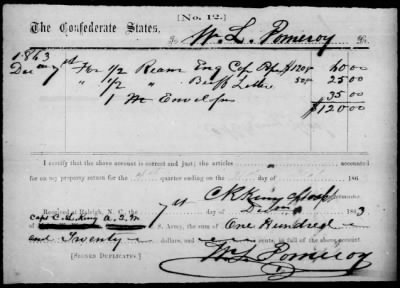 [No. 12.]
The Confederate States,
To W. L. Pomeroy Dr.
1863
Dec 7st For 1/2 Ream Eng Cap Pap $120.00 60.00
" 1/2 " Buff Letter 50.00 25.00
1 M Envelops 35.00
$120.00
I certify that the above account is correct and just; the articles accounted
for on my property return for the quarter ending on the of 186
C R King Capt
Received at Raleigh, N. C. the 7st Decem 1863
of Capt C. R. King A. Q. M. S. Army, the sum of One Hundred
and Twenty dollars, and cents, in full of the above account.
[Signed Duplicates.] W. L. Pomeroy